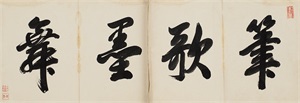 筆歌墨舞